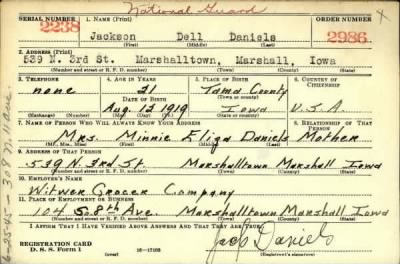 National Guard
SERIAL NUMBER 1. NAME (Print) ORDER NUMBER
2238 Jackson Dell Daniels 2986
(First) (Middle) (Last)
2. ADDRESS (Print)
539 N. 3rd St. Marshalltown, Marshall, Iowa
(Number and street or R. F. D. number) (Town) (County) (State)
3. TELEPHONE 4. AGE IN YEARS 5. PLACE OF BIRTH 6. COUNTRY OF CITIZENSHIP
none 21 Tama County
DATE OF BIRTH
Aug 13 1919 Iowa U.S.A
(Exchange) (Number) (Mo.) (Day) (Yr.) (State or country)
7. NAME OF PERSON WHO WILL ALWAYS KNOW YOUR ADDRESS 8. RELATIONSHIP OF THAT PERSON
Mrs. Minnie Eliza Daniels Mother
(Mr., Mrs., Miss) (First) (Middle) (Last)
9. ADDRESS OF THAT PERSON
539 N. 3rd St. Marshalltown Marshall Iowa
(Number and street or R. F. D. number) (Town) (County) (State)
10. EMPLOYER'S NAME
Witwer Grocer Company
11. PLACE OF EMPLOYMENT OR BUSINESS
104 S. 8th Ave. Marshalltown Marshall Iowa
(Number and street or R. F. D. number) (Town) (County) (State)
I AFFIRM THAT I HAVE VERIFIED ABOVE ANSWERS AND THAT THEY ARE TRUE.
REGISTRATION CARD
D. S. S. Form 1 16-17105 Jack Daniels
(over)
6-25-45-308 N. 11 Ave.